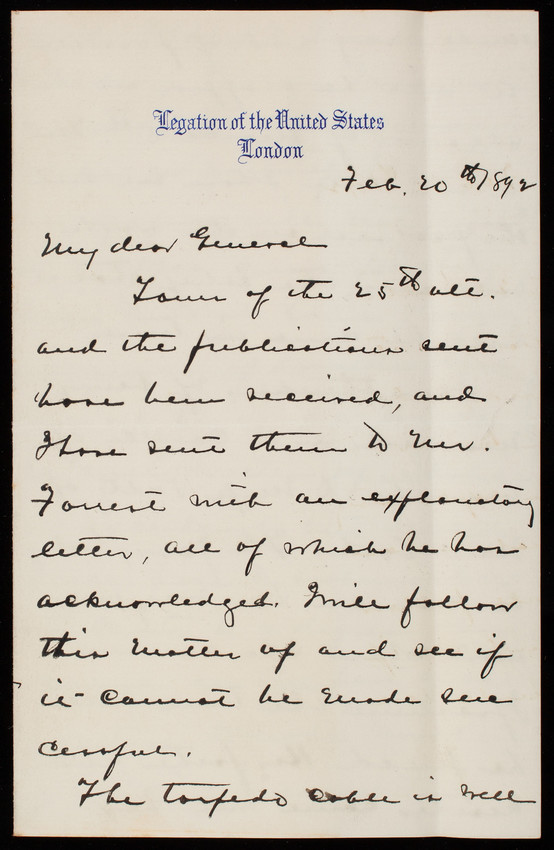 Legation of the United States
London
Feb. 20th 1892
My dear General
Yours of the 25th ult.
and the publications sent
have been received, and
I have sent them to Mr.
Forrest with an explanatory
letter, all of which he has
acknowledged. I will follow
this matter up and see if
it cannot be made suc
cessful.
The torpedo cable is well